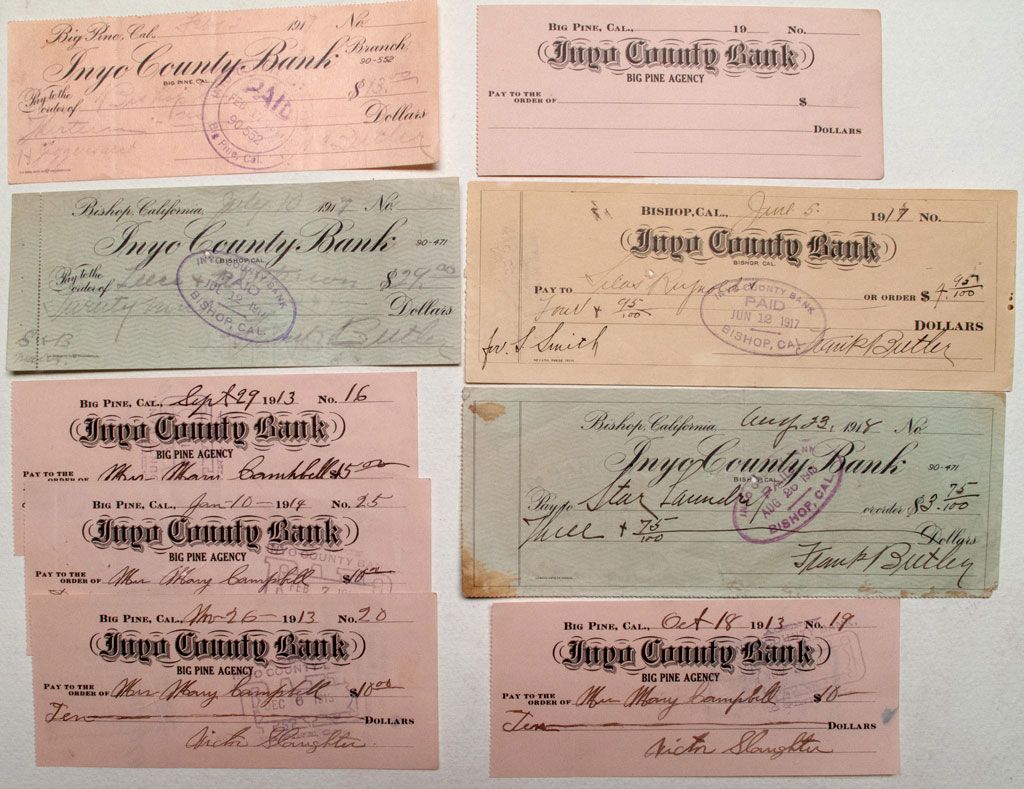 Big Pine, Cal. 1917 No.
Inyo County Bank Branch
90-552
BIG PINE, CAL.
Pay to the
order of Bishop $13.00
Dollars
PAID
FEB
90-552
Big Pine, Cal.
BIG PINE, CAL., 19 No.
Inyo County Bank
BIG PINE AGENCY
PAY TO THE
ORDER OF $
DOLLARS
Bishop, California, July 10 1917 No.
Inyo County Bank 90-471
BISHOP, CAL.
Pay to the
order of $29.00
Dollars
Butler
INYO COUNTY BANK
PAID
JUL 12 1917
BISHOP, CAL.
BISHOP, CAL., June 5 1917 No.
Inyo County Bank
BISHOP, CAL.
PAY TO Silas Reynolds OR ORDER $4 95/100
Four & 95/100 DOLLARS
for S Smith Frank Butler
INYO COUNTY BANK
PAID
JUN 12 1917
BISHOP, CAL.
BIG PINE, CAL., Sept 29 1913 No. 16
Inyo County Bank
BIG PINE AGENCY
PAY TO THE
ORDER OF Mrs Mary Campbell $5.00
BIG PINE, CAL., Jan-10-1914 No. 25
Inyo County Bank
BIG PINE AGENCY
PAY TO THE
ORDER OF Mrs Mary Campbell $10.00
INYO COUNTY B
FEB 7
BIG PINE, CAL., Nov-26-1913 No. 20
Inyo County Bank
BIG PINE AGENCY
PAY TO THE
ORDER OF Mrs Mary Campbell $10.00
Ten DOLLARS
Victor Slaughter
DEC 6 1913
Bishop, California, Aug 23, 1918 No.
Inyo County Bank 90-471
BISHOP, CAL.
Pay to Star Laundry or order $3.75/100
Three & 75/100 Dollars
Frank Butler
PAID
AUG 26 1918
BISHOP, CAL.
BIG PINE, CAL., Oct 18 1913 No. 19.
Inyo County Bank
BIG PINE AGENCY
PAY TO THE
ORDER OF Mrs Mary Campbell $10-
Ten DOLLARS
Victor Slaughter